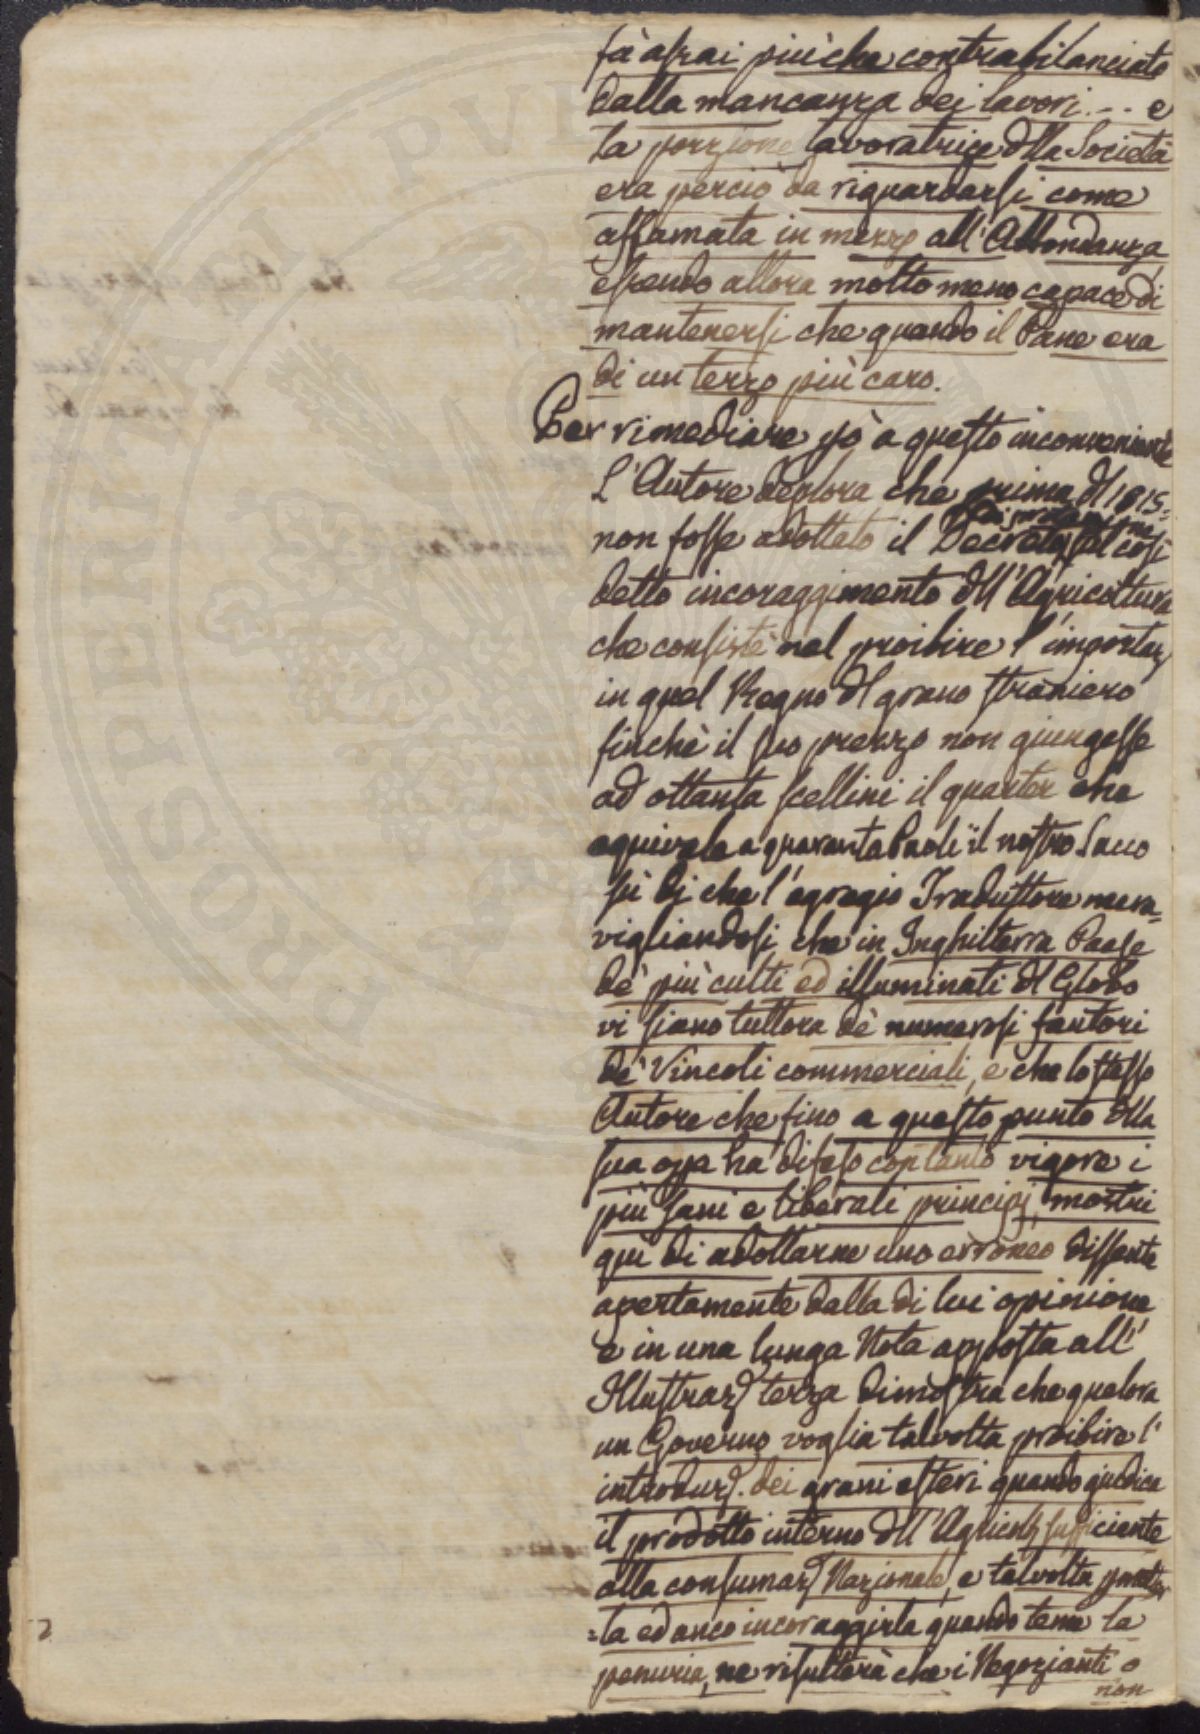 fù assai più che contrabilanciato
dalla mancanza dei lavori . . . e
la porzione lavoratrice dlla Società
era perciò da riguardarsi come
affamata in mezzo all'Abbondanza
essendo allora molto meno capace di
mantenersi che quando il Pane era
di un terzo più caro.
Per rimediare pò a questo inconveniente
L'Autore deplora che prima dl 1815=
non fosse adottato il Decreto sul così
detto incoraggimento dll'Agricoltura
che consiste nel proibire l'importaz
in quel Regno dl grano straniero
finchè il suo prezzo non giungesse
ad ottanta scellini il quarter che
equivale a quaranta Paoli il nostro Sacco
sù di che l'egregio Traduttore mera=
vigliandosi che in Inghilterra Paese
de' più culti ed illuminati dl Globo
vi siano tuttora de' numerosi fautori
de' Vincoli commerciali, e che lo stesso
Autore che fino a questo punto dlla
sua opa ha difeso con tanto vigore i
più sani e liberali principj, mostri
quì di adottarne uno erroneo dissente
apertamente dalla di lui opinione
e in una lunga Nota apposta all'
Illustraz terza dimostra che qualora
un Governo voglia talvolta proibire l'
introduz. dei grani esteri quando giudica
il prodotto interno dll'Agricolt sufficiente
alla consumaz Nazionale, e talvolta permetter
=la ed anco incoraggirla quando teme la
penuria, ne risulterà che i Negozianti o
non
2
PROSPERITATI PUBLICAE